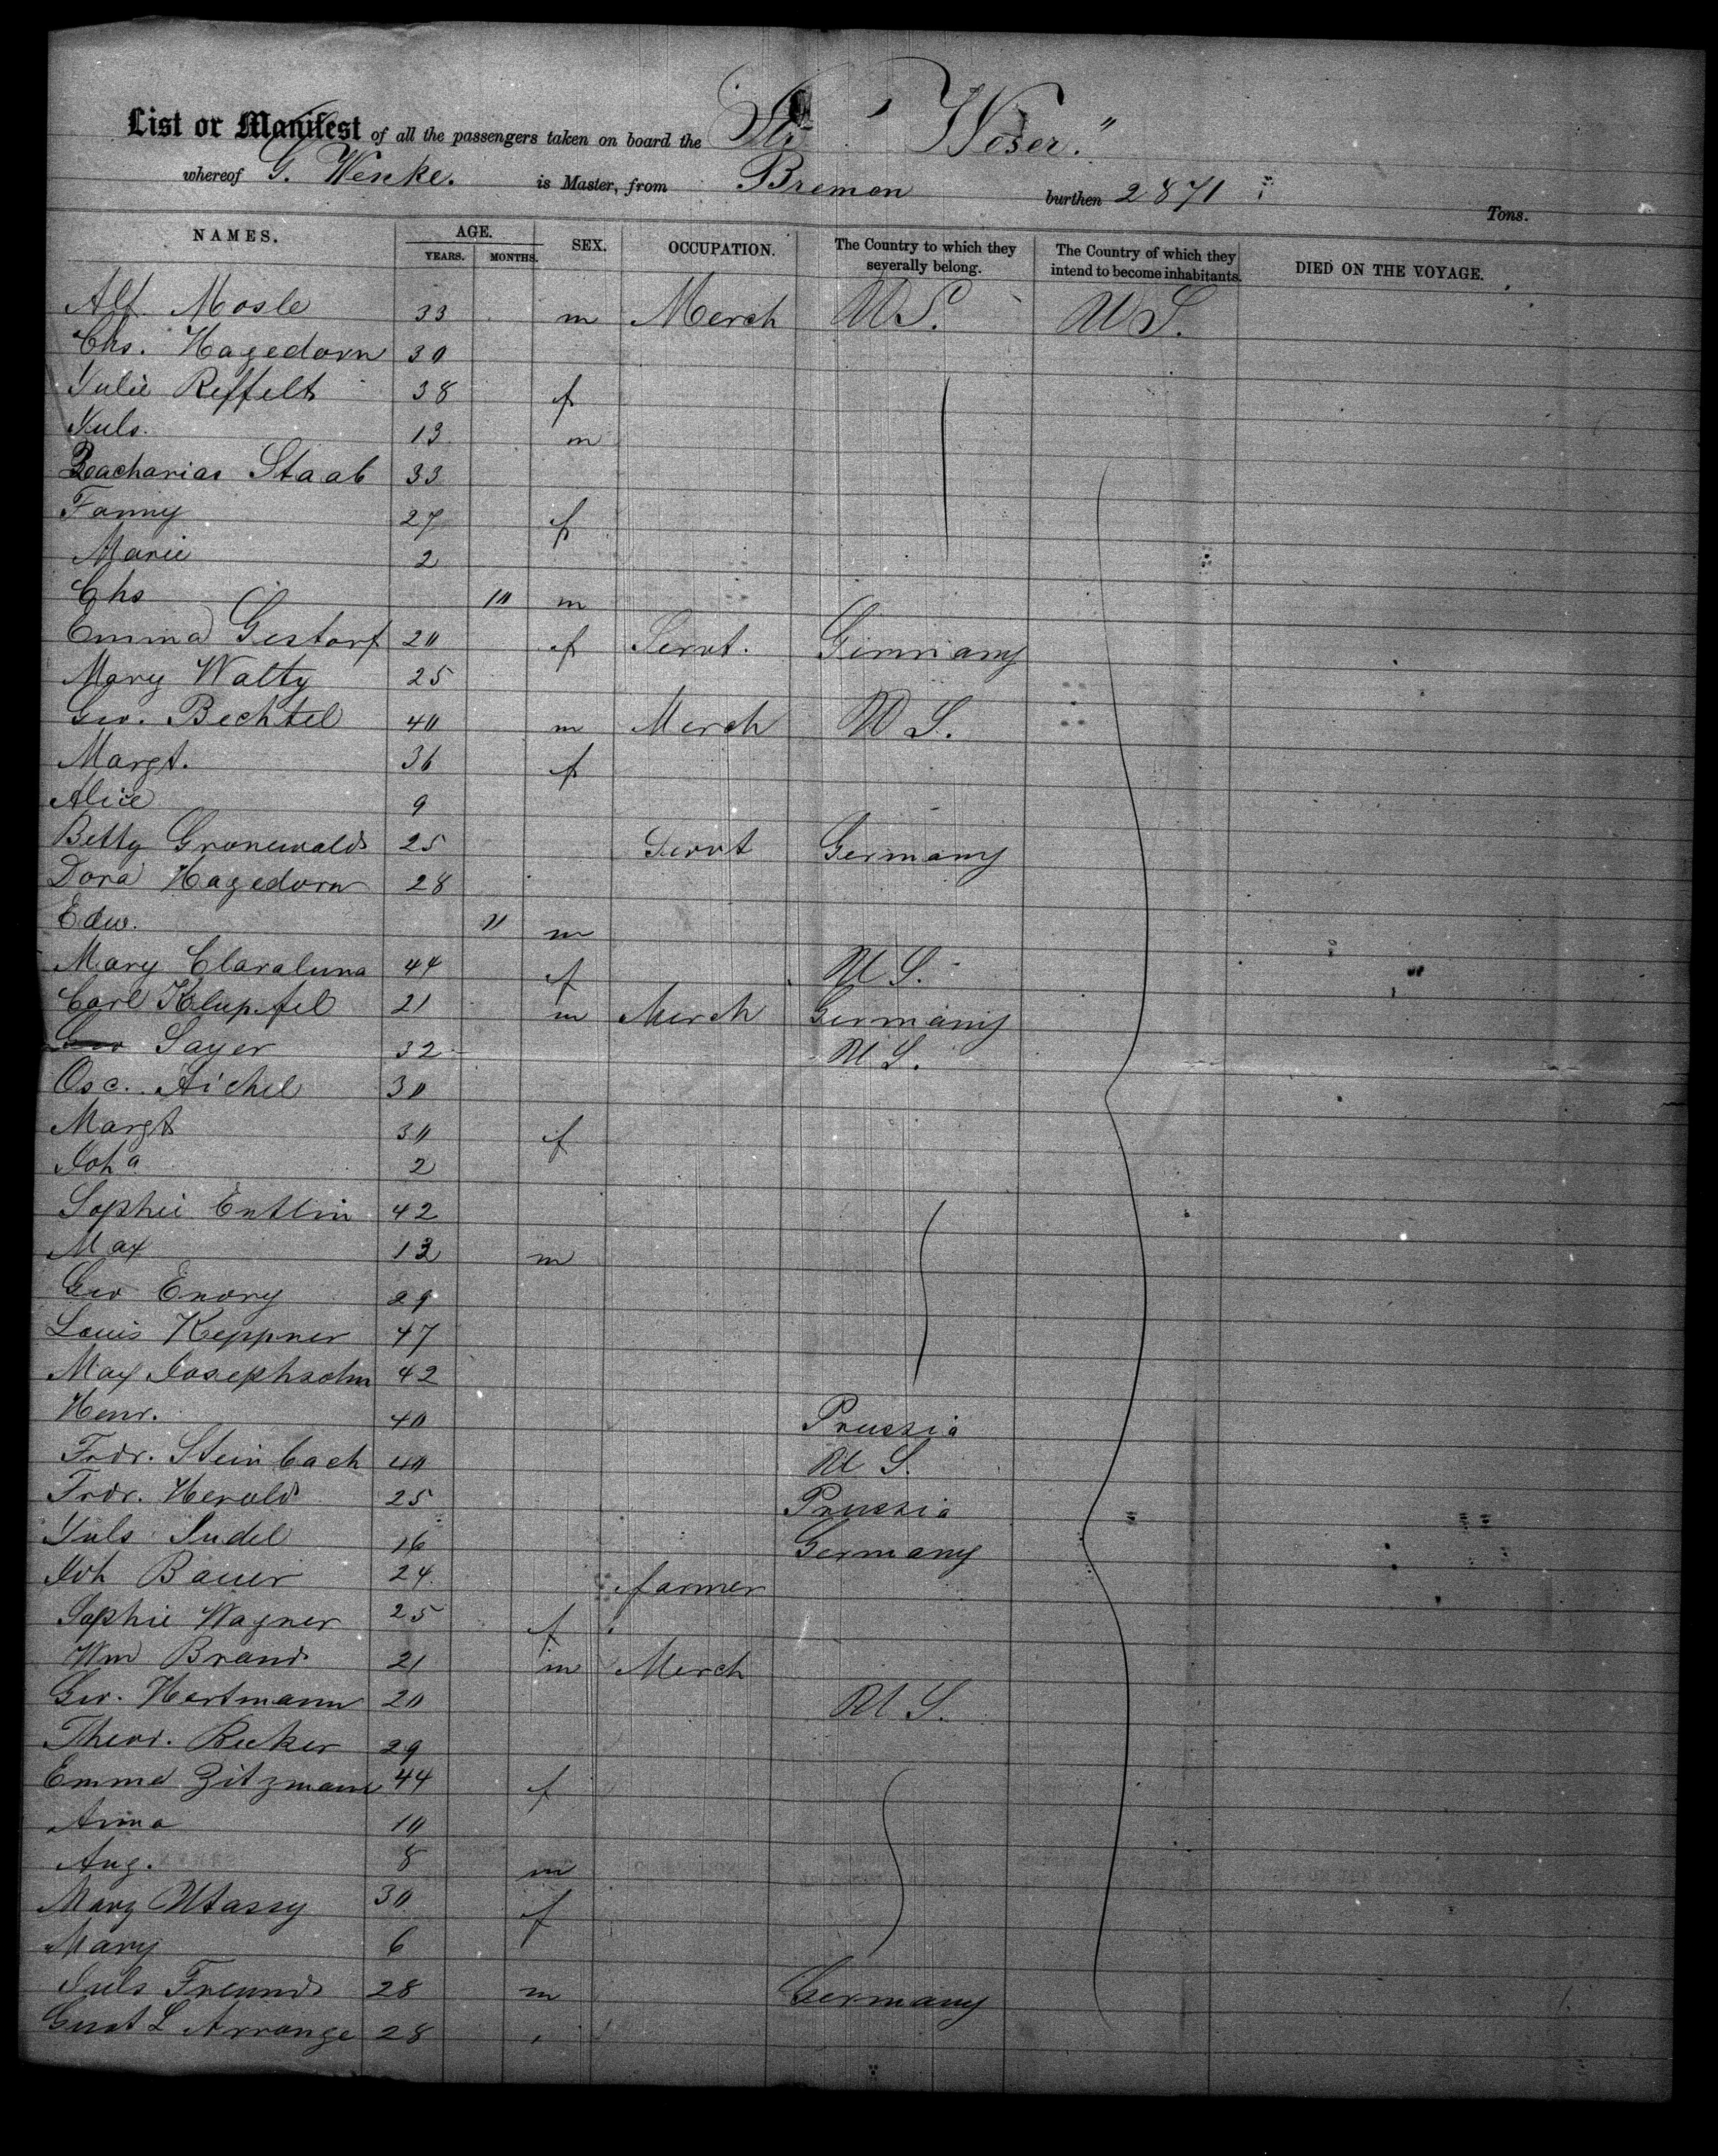 List or Manifest of all the passengers taken on board the Str "Weser."
whereof G. Wenke. is Master, from Bremen burthen 2871 Tons.
NAMES. AGE. SEX. OCCUPATION. The Country to which they severally belong. The Country of which they intend to become inhabitants. DIED ON THE VOYAGE.
YEARS. MONTHS.
Alf. Mosle 33 m Merch U S. U S.
Chs. Hagedorn 30
Julie Reffelt 38 f
Juls. 13 m
Zacharias Staab 33
Fanny 27 f
Marie 2
Chs 10 m
Emma Gestorf 20 f Servt. Germany
Mary Walty 25
Geo. Bechtel 40 m Merch U S.
Margt. 36 f
Alice 9
Betty Gronewald 25 Servt Germany
Dora Hagedorn 28
Edw. 11 m
Mary Claraluna 44 f U S.
Carl Klupfel 21 m Merch Germany
Sayer 32 U S.
Osc. Aichel 30
Margt 30 f
Joha 2
Sophie Entlin 42
Max 13 m
Geo Enory 29
Louis Keppner 47
Max Josephsohn 42
Henr. 40 Prussia
Frdr. Steinbach 40 U S.
Frdr. Herold 25 Prussia
Juls Judel 16 Germany
Joh Bauer 24 farmer
Sophie Wagner 25 f
Wm Brand 21 m Merch
Geo. Hartmann 20 U S.
Theod. Becker 29
Emma Zitzmann 44 f
Anna 10
Aug. 8 m
Mary Utassy 30 f
Mary 6
Juls Freund 28 m Germany
Gust L Arronge 28